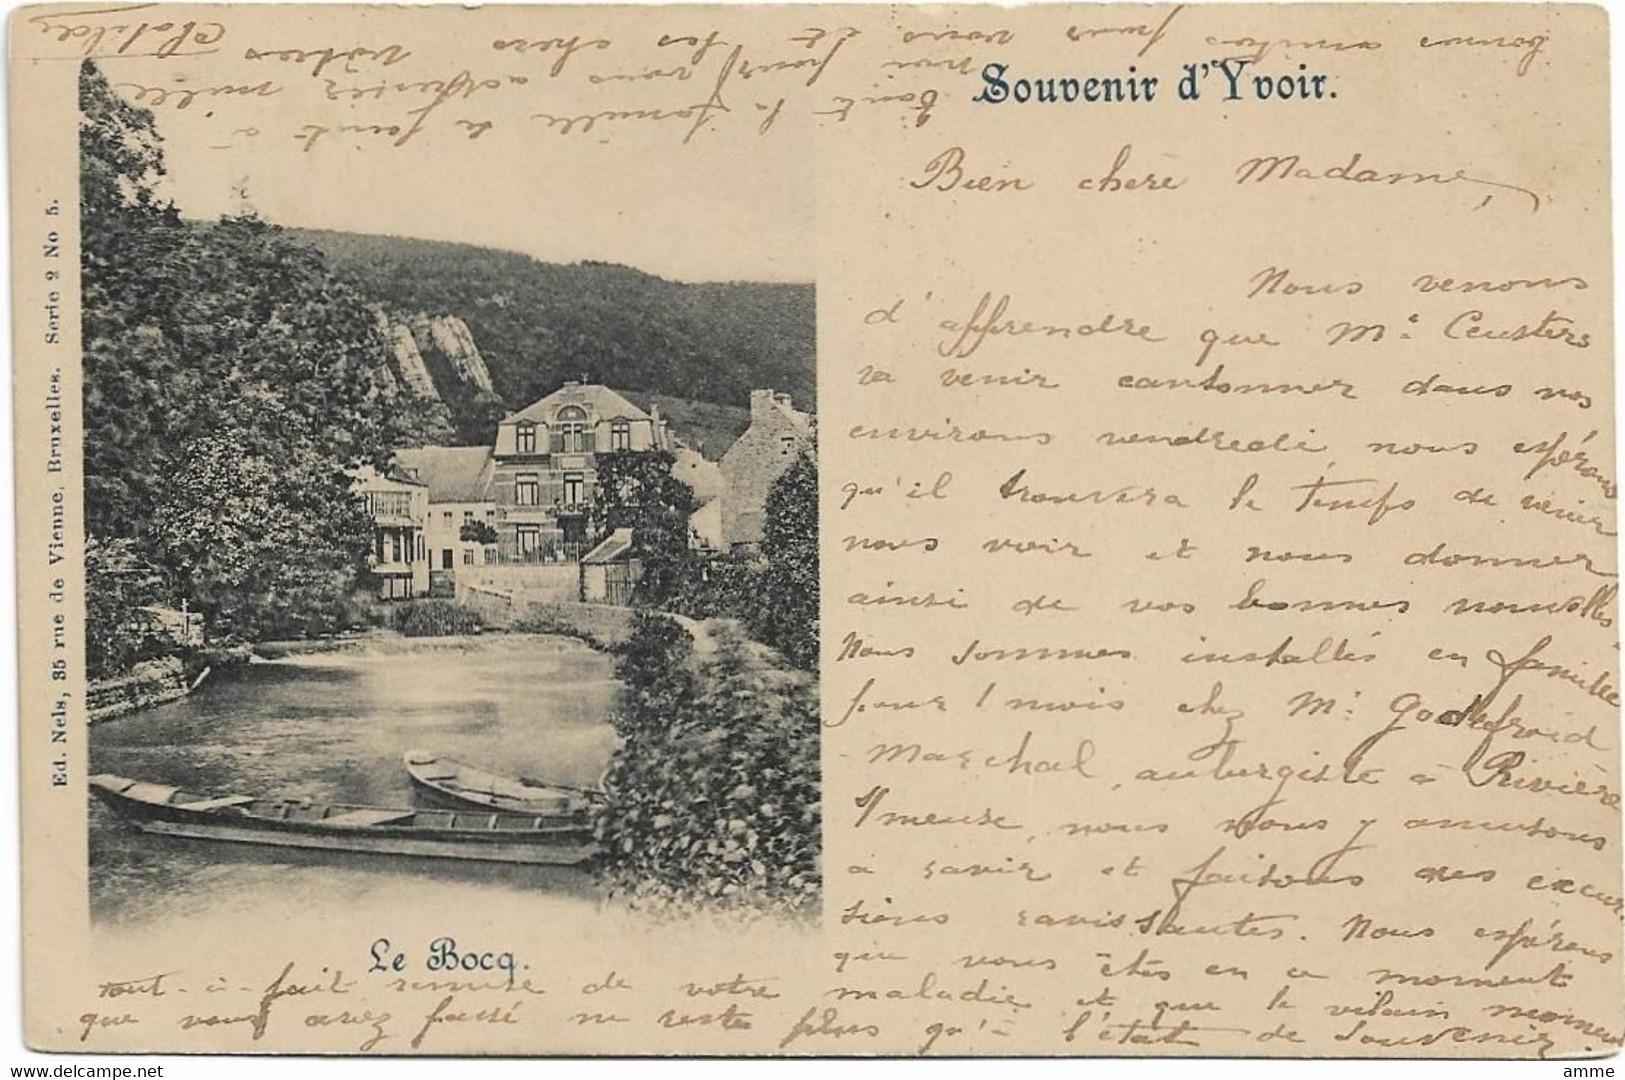 Souvenir d'Yvoir.
Bien chère Madame,
Nous venons
d'apprendre que Mr Ceusters
va venir cantonner dans vos
environs vendredi, nous espérons
qu'il trouvera le temps de venir
nous voir et nous donner
ainsi de vos bonnes nouvelles
Nous sommes installés en famille
pour 1 mois chez Mr Godefroid
Marchal, aubergiste à Rivière
s/meuse, nous nous y amusons
à ravir et faisons des excur
sions ravissantes. Nous espérons
que vous êtes en ce moment
tout-à-fait remise de votre maladie et que le vilain moment
que vous avez passé ne reste plus qu'à l'état de souvenir.
toute la famille se joint à
moi pour vous adresser mille
bonnes amitiés pour vous et les chers vôtres
Le Bocq.
Ed. Nels, 35 rue de Vienne, Bruxelles. Serie 2 No 5.
amme
delcampe.net